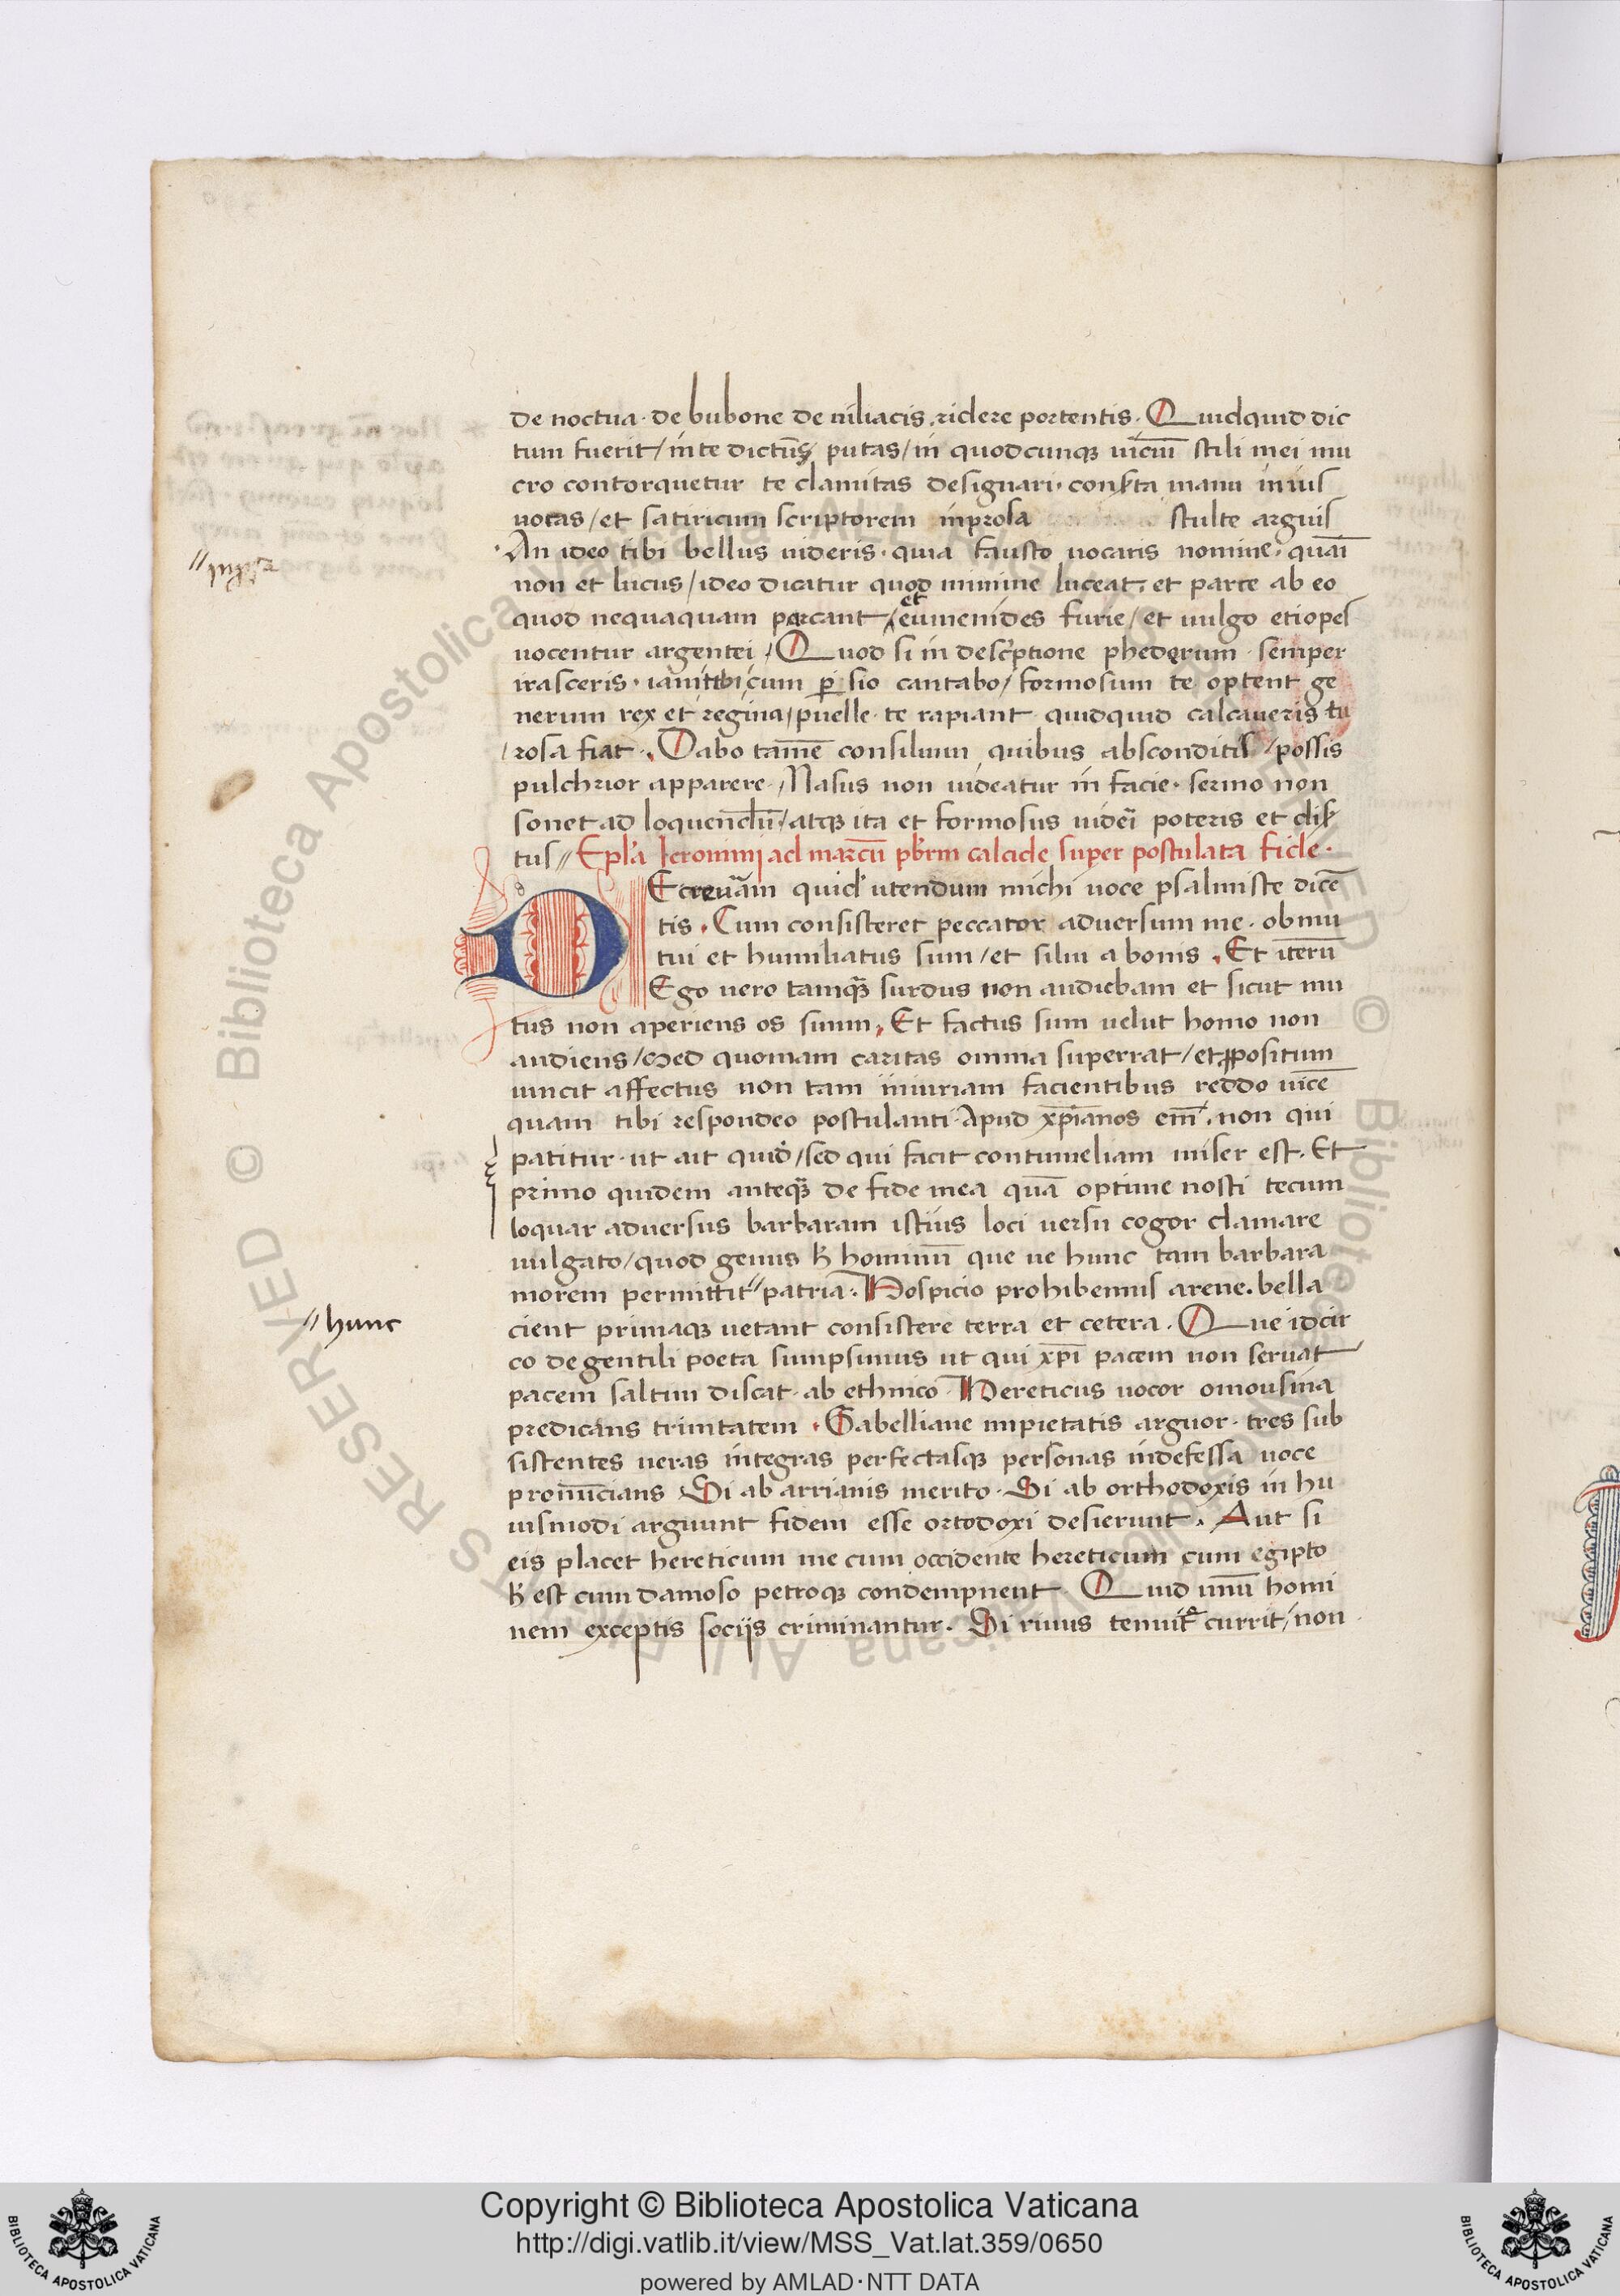 de noctua · de bubone de niliacis, ridere portentis · Quidquid dic
tum fuerit / in te dictũ putas / in quodcunqꝫ uiciũ stili mei mu
cro contorquetur te clamitas designari · manu in ius
uocas / et satiricum scriptorem in prosa stulte arguis
An ideo tibi bellus uideris · quia fausto uocaris nomine · quãi
non et lucus / ideo dicatur quod minime luceat, et parce ab eo
et
quod nequaquam parcant / eumenides furie / et uulgo etiopes
uocentur argentei / Quod si in descͥptione phedorum · semper
irasceris · iam tibi cum ꝑsio cantabo / formosum te optent ge
nerum rex et regina / puelle · te rapiant quidquid calcaueris tu
/ rosa fiat · Dabo tamẽ consilium quibus absconditis / possis
pulchrior apparere · Nasus non uideatur in facie · sermo non
sonet ad loquendũ / atqꝫ ita et formosus uideri poteris et diſẽ
tus // Epl̃a Ieronimi ad marcũ pb̃rm calcide super postulata fide ·
Ecreuãm quid utendum michi uoce psalmiste dicẽ
D
tis · Cum consisteret peccator aduersum me · obmu
tui et humiliatus sum / et silui a bonis · Et iterũ
Ego uero tamqꝫ surdus non audiebam et sicut mu
tus non aperiens os suum, Et factus sum uelut homo non
audiens / Sed quoniam caritas omnia superrat / et ꝓpositum
uincit affectus non tam iniuriam facientibus reddo uicẽ
quam tibi respondeo postulanti · Apud xp̃ianos em̃ · non qui
patitur · ut ait quid̾ / sed qui facit contumeliam miser est · Et
primo quidem anteqꝫ de fide mea quã optime nosti tecum
loquar aduersus barbaram istius loci uersu cogor clamare
uulgato / quod genus h̾ hominũ que ue hunc tam barbara
morem permittit // patria · Hospicio prohibemus arene · bella
// hunc
cient primaqꝫ uetant consistere terra et cetera · Que idcir
co de gentili poeta sumpsimus ut qui xp̃i pacem non seruat
pacem saltim discat · ab ethnico · Hereticus uocor omousina
predicans trinitatem · Sabelliane impietatis arguor · tres sub
sistentes ueras integras perfectasqꝫ personas indefessa uoce
pronũcians Si ab arrianis merito · Si ab orthodoxis in hu
iusmodi arguunt fidem esse ortodoxi desierunt · Aut si
eis placet hereticum me cum occidente hereticum cum egipto
h̾ est cum damoso petroqꝫ condempnent Quid unũ homi
nem exceptis sociis criminantur · Si riuus tenuit͛ currit / non
Copyright © Biblioteca Apostolica Vaticana
http://digi.vatlib.it/view/MSS_Vat.lat.359/0650
powered by AMLAD·NTT DATA
BIBLIOTECA APOSTOLICA VATICANA
BIBLIOTECA APOSTOLICA VATICANA